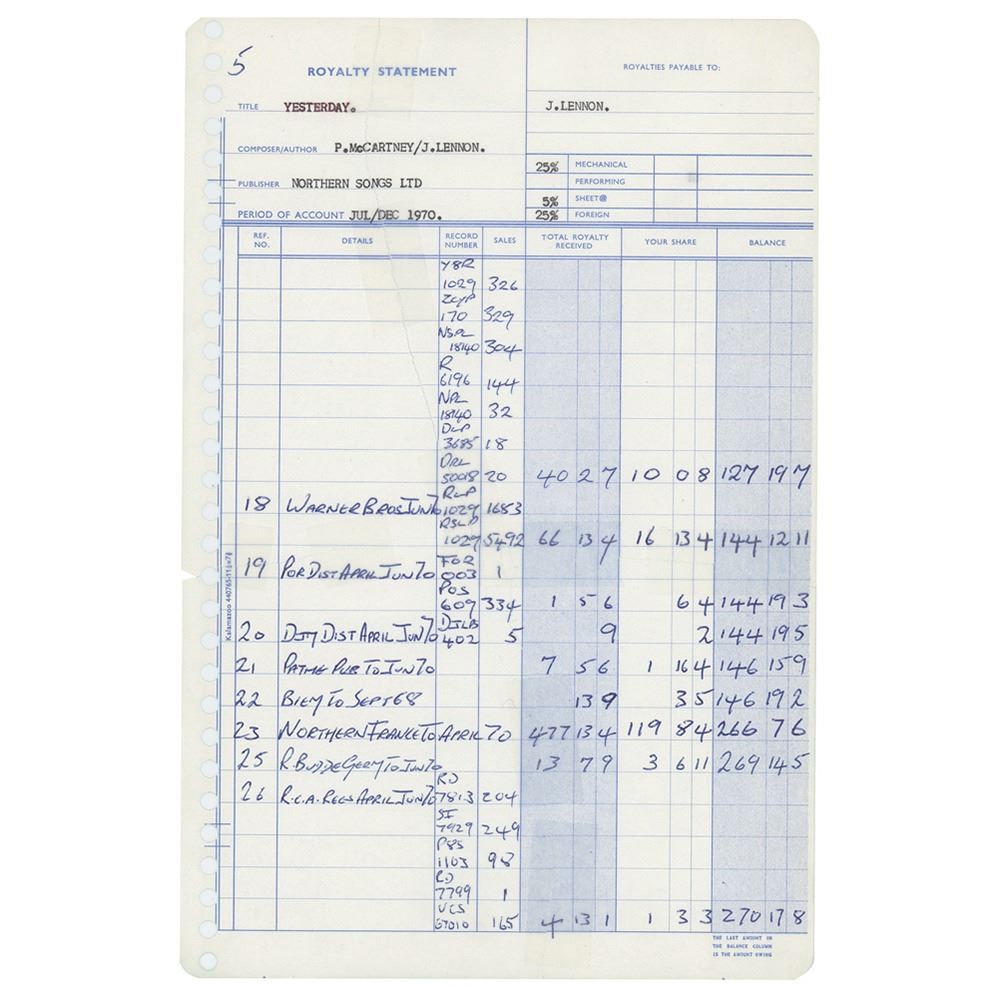 5
ROYALTY STATEMENT
ROYALTIES PAYABLE TO:
TITLE YESTERDAY.
J.LENNON.
COMPOSER/AUTHOR P.McCARTNEY/J.LENNON.
25% MECHANICAL
PERFORMING
PUBLISHER NORTHERN SONGS LTD
5% SHEET@
PERIOD OF ACCOUNT JUL/DEC 1970.
25% FOREIGN
REF. NO. DETAILS RECORD NUMBER SALES TOTAL ROYALTY RECEIVED YOUR SHARE BALANCE
Y8R
1029 326
ZCYP
170 329
NSPL
18140 304
R
6196 144
NPL
18140 32
DLP
3685 18
DRL
50018 20 40 2 7 10 0 8 127 19 7
18 WARNER BROS JUN 70 RLP 1029 1683
RSLP
1029 5492 66 13 4 16 13 4 144 12 11
19 POR DIST APRIL JUN 70 FOR 003 1
POS
609 334 1 5 6 6 4 144 19 3
20 DJM DIST APRIL JUN 70 DJLB 402 5 9 2 144 19 5
21 PATHE PUB TO JUN 70 7 5 6 1 16 4 146 15 9
22 BIEM TO SEPT 68 13 9 3 5 146 19 2
23 NORTHERN FRANCE TO APRIL 70 477 13 4 119 8 4 266 7 6
25 R.BUDDE GERM TO JUN 70 13 7 9 3 6 11 269 14 5
26 R.C.A. RECS APRIL JUN 70 RD 7813 204
SF
7929 249
P8S
1103 98
RD
7799 1
VCS
67010 165 4 13 1 1 3 3 270 17 8
THE LAST AMOUNT IN
THE BALANCE COLUMN
IS THE AMOUNT OWING